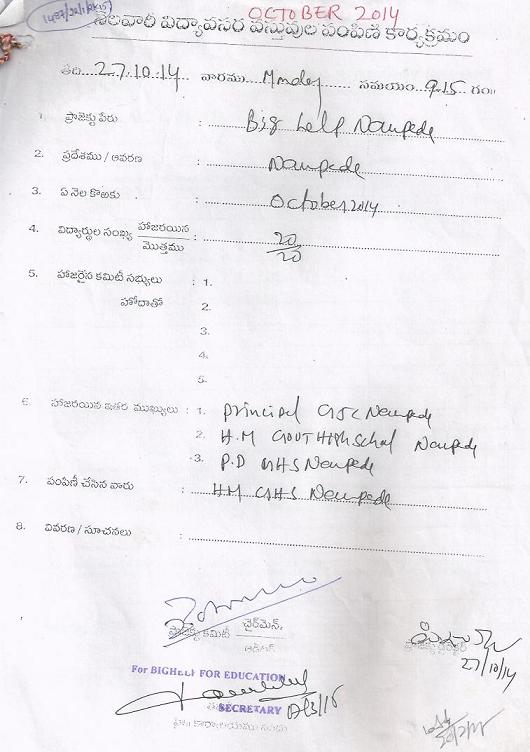 OCTOBER 2014
నెలవారీ విద్యావసర వస్తువుల పంపిణీ కార్యక్రమం
తేది 27.10.14 వారము Monday సమయం 9.15 గం॥
1. ప్రాజెక్టు పేరు : Big help Naupada
2. ప్రదేశము / ఆవరణ : Naupada
3. ఏ నెల కొఱకు : October 2014
4. విద్యార్థుల సంఖ్య హాజరయిన / మొత్తము : 20/20
5. హాజరైన కమిటీ సభ్యులు : 1.
హోదాతో 2.
3.
4.
5.
6. హాజరయిన ఇతర ముఖ్యులు : 1. Principal GJC Naupada
2. H.M GOVT High School Naupada
3. P.D GHS Naupada
7. పంపిణీ చేసిన వారు : HM GHS Naupada
8. వివరణ / సూచనలు :
ప్రాజెక్టు కమిటీ ఛైర్మెన్
ఆడిటర్
27/10/14
For BIGHELP FOR EDUCATION
SECRETARY